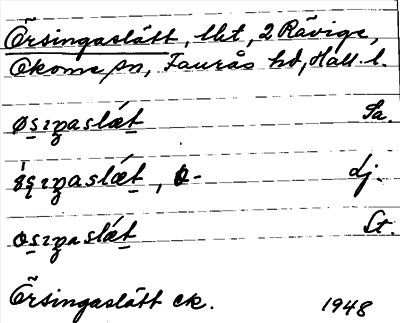 Örsingaslätt, llht, 2 Rävige,
Okome sn, Faurås hd, Hall. l.
øsɪŋaslæt Sa.
ɵ̨sɪŋaslæt, ø- Lj.
øsɪŋaslæt St.
Örsingaslätt ek. 1948